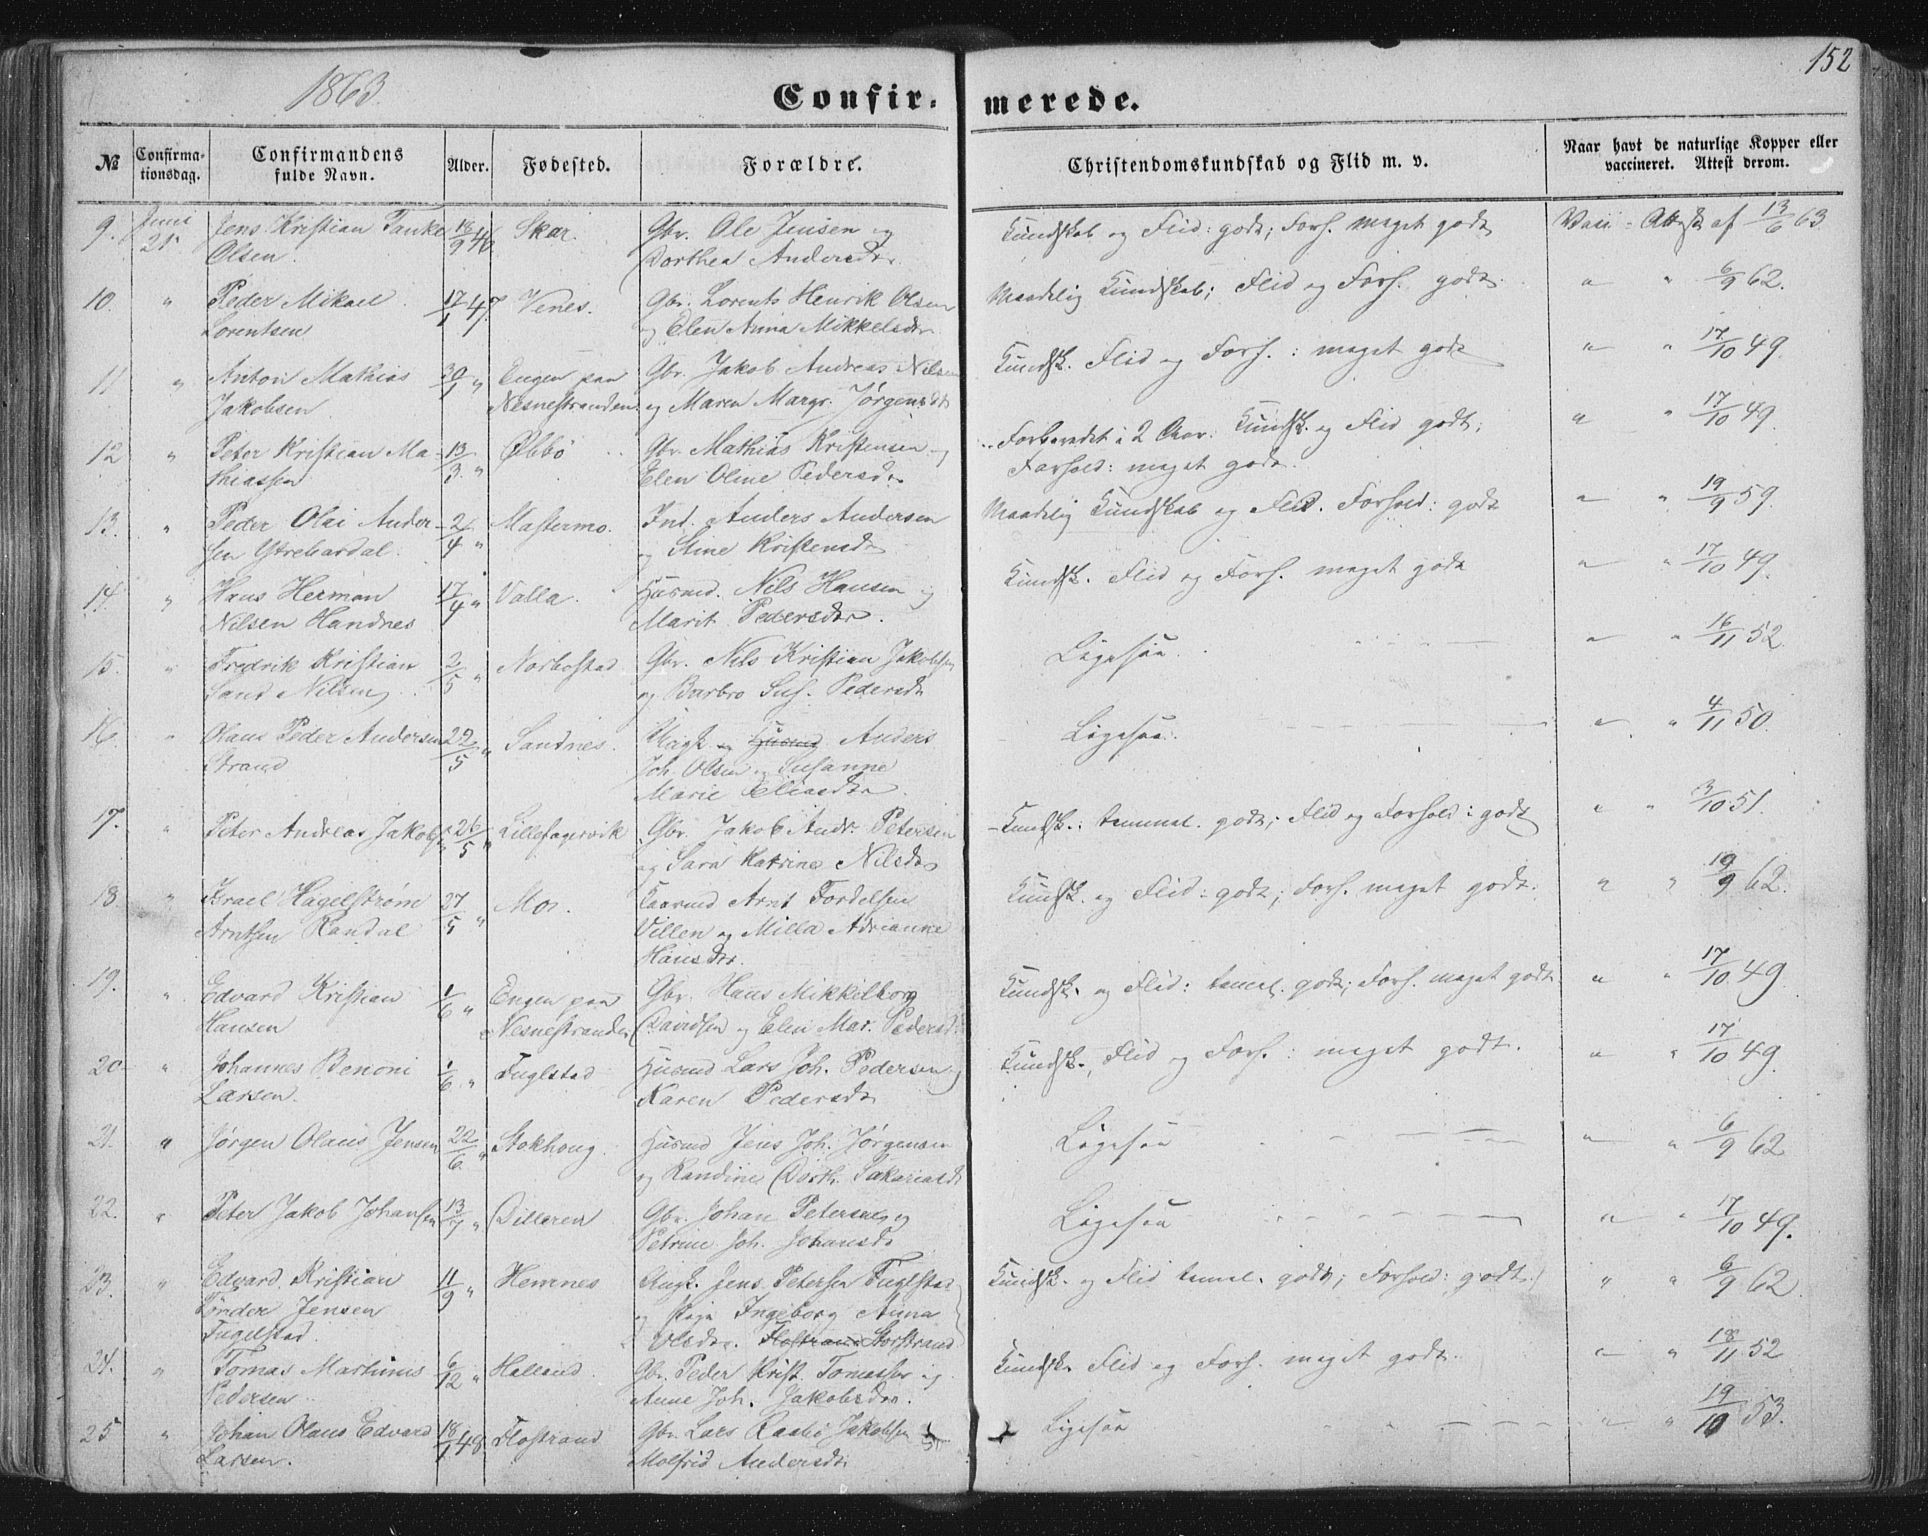 1863.
152
Confir: merede.
№
Confirma-
tionsdag.
Confirmandens
fulde Navn.
Alder.
Fødested.
Forældre.
Christendomskundskab og Flid m. v.
Naar havt de naturlige Kopper eller
vaccineret. Attest derom.
9. Juni 21. Jens Kristian Tanke 18/9 46 Skar. Gbr. Ole Jensen og Kundskab og Flid: godt; Forh. meget godt Vacc. Attest af 13/6 63
Olsen. Dorthea Andersdr.
10. " Peder Mikael 17/1 47. Venes. Gbr. Lorents Henrik Olsen Maadelig Kundskab; Flid og Forh. godt. " " 6/9 62.
Lorentsen og Elen Anna Mikkelsdr.
11 " Anton Mathias 30/1 " Engen paa Gbr. Jakob Andreas Nilsen Kundsk. Flid og Forh.: meget godt " " 17/10 49.
Jakobsen. Nesnestranden. og Maren Margr. Jørgensdr
12 " Peter Kristian Ma- 13/3 " Øbbø Gbr. Mathias Kristensen og Forberedt i 2 Aar. Kundsk. og Flid godt; " " 17/10 49.
thiassen Elen Oline Pedersdr Forhold: meget godt.
13. " Peder Olai Ander- 2/4 " Mastermo. Int. Anders Andersen Maadelig Kundskab og Flid. Forhold: godt " " 19/9 59.
sen Ytrebardal. og Stine Kristensdr
14. " Hans Herman 17/4 " Valla. Husmd. Nils Hansen og Kundsk. Flid og Forh. meget godt " " 17/10 49.
Nilsen Handnes Marit Pedersdr.
15. " Fredrik Kristian 2/5 " Norbostad Gbr. Nils Kristian Jakobsen Ligesaa. " " 16/11 52.
Sand Nilsen og Barbro Sus. Pedersdr
16. " Hans Peder Andersen 22/5 " Sandnes. Husmd Anders Ligesaa. " " 4/11 50.
Strand Joh. Olsen og Susanne
Marie Eliasdr.
17. " Peter Andreas Jakobsen 26/5 " Lillefagervik Gbr. Jakob Andr. Petersen Kundsk.: temmel. godt; Flid og Forhold: godt " " 3/10 51.
og Sara Katrine Nilsdr
18. " Israel Hagelstrøm 27/5 " Mo. Kaarmd Arnt Tordelsen Kundsk. og Flid: godt; Forh. meget godt. " " 19/9 62.
Arntsen Randal Villen og Milla Adrianne
Hansdr.
19. " Edvard Kristian 1/6 " Engen paa Gbr. Hans Mikkelborg Kundsk. og Flid: temel. godt; Forh. meget godt " " 17/10 49.
Hansen Nesnestranden Davidsen og Elen Mar. Pedersd.
20 " Johannes Benoni 1/6 " Fuglstad Husmd Lars Joh. Pedersen og Kundsk., Flid og Forh.: meget godt. " " 17/10 49.
Larsen. Karen Pedersdr
21. " Jørgen Olaus Jensen 22/6 " Stokhaug. Husmd Jens Joh. Jørgensen Ligesaa " " 6/9 62
og Randine Dorth. Sakariasdr
22. " Peter Jakob Johansen 13/7 " Dilleren Gbr. Johan Petersen og Ligesaa " " 17/10 49.
Petrine Joh. Johansdr
23. " Edvard Kristian 11/9 " Hemnes Ungk. Jens Petersen Fuglstad Kundsk. og Flid temel. godt; Forhold: godt. " " 6/9 62.
Tønder Jensen og Pige Ingeborg Anna
Fugelstad. Olsdr. Flostrand Storstrand
24. " Tomas Martinus 6/12 " Halland. Gbr. Peder Krist. Tomassen og Kundsk. Flid og Forh. meget godt. " " 18/11 52
Pedersen. Anne Joh. Jakobsdr.
25 " Johan Olaus Edvard 18/1 48. Flostrand Gbr. Lars Raabo Jakobsen Ligesaa " " 19/10 53.
Larsen. Molfrid Andersdr.